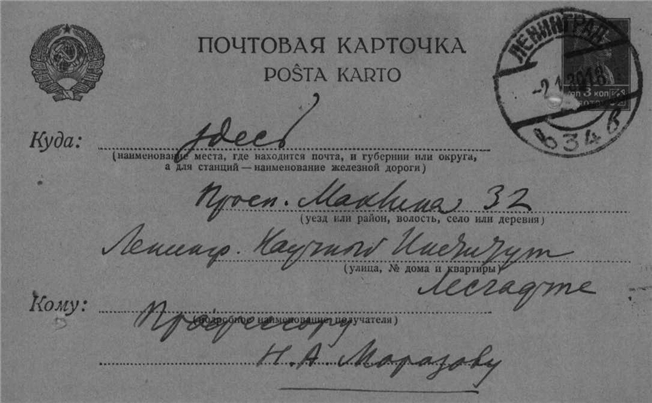 ПОЧТОВАЯ КАРТОЧКА
POŜTA KARTO
ЛЕНИНГРАД
Куда: здесь
(наименование места, где находится почта, и губернии или округа,
а для станций — наименование железной дороги)
Просп. Маклина 32
(уезд или район, волость, село или деревня)
Ленингр. Научный Институт
(улица, № дома и квартиры)
Лесгафта
Кому: Профессору
(подробное наименование получателя)
Н. А. Морозову